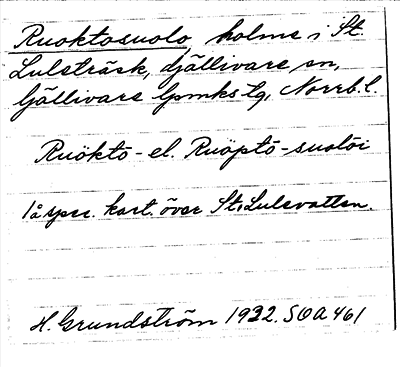 Ruoktosuolo, holme i St.
Lulsträsk, Gällivare sn,
Gällivare lpmks tg, Norrb. l.
Ruökto- el. Ruöptö-suoloi
låspec. kart. över St. Lulevatten.
H. Grundström 1932. SOA 461